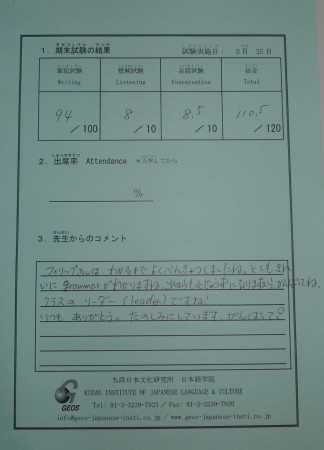 きまつしけん けっか
1. 期末試験の結果 試験実施日: 3月 25日
筆記試験 聴解試験 会話試験 総合
Writing Listening Conversation Total
94 8 8,5 110,5
/ 100 / 10 / 10 / 120
しゅっせきりつ
2. 出席率 Attendance *入学してから
%
せんせい
3. 先生からのコメント
フィリップさんは、わかるまで よくべんきょうしましたね。とてもきれ
いに grammar がわかりますね。
クラスの リーダー (leader) ですね!
いつも ありがとう。たのしみにしています。がんばって
GEOS
九段日本文化研究所 日本語学院
KUDAN INSTITUTE OF JAPANESE LANGUAGE & CULTURE
Tel: 01-3-3239-7923 / Fax: 01-3-3239-7920
info@geos-japanese-insti.co.jp / www.geos-japanese-insti.co.jp